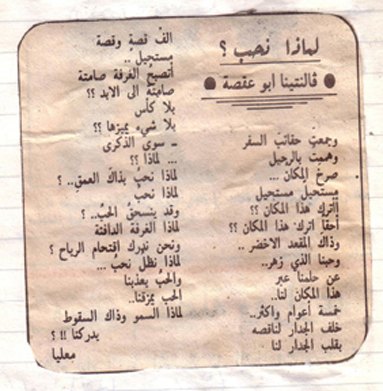 لماذا نحب ؟
ڤالنتينا ابو عقصة
وجمعت حقائب السفر
وهممت بالرحيل
صرخ المكان ...
مستحيل مستحيل
أأترك هذا المكان ؟؟
أحقا أترك هذا المكان ؟؟
وذاك المقعد الاخضر ..
وحبنا الذي زهر..
عن حلمنا عبر
هذا المكان لنا..
خمسة أعوام واكثر..
خلف الجدار لناقصه
بقلب الجدار لنا
الف قصة وقصة
مستحيل ..
أتصبح الغرفة صامتة
صامتة الى الابد ؟؟
بلا كأس
بلا شيء يميزها ؟؟
ـ سوى الذكرى
... لماذا ؟؟
لماذا نحب بذاك العمق.. ؟
لماذا نحب
وقد يستحق الحب.. ؟
لماذا الغرفة الدافئة
ونحن ندرك اقتحام الرياح ؟
لماذا نظل نحب ...
والحب يعذبنا
الحب يمزقنا..
لماذا السمو وذاك السقوط
يدركنا !! ؟
معليا